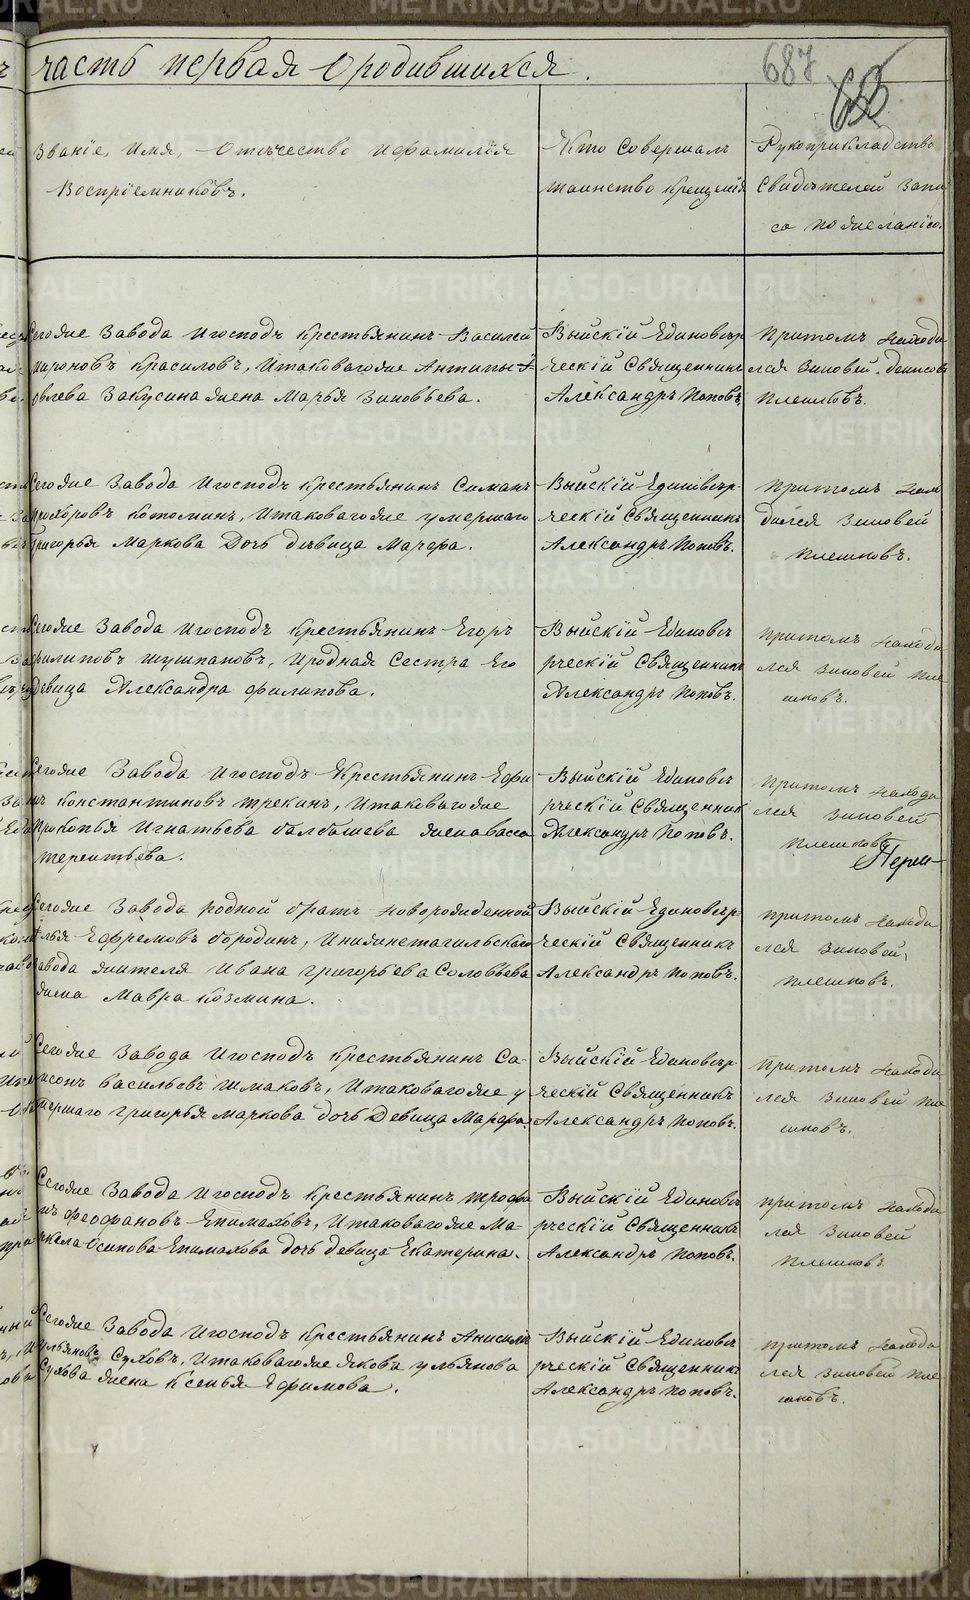 часть первая Ородившихся.
687
Званїе, Имя, Отъчество Ифамилїя
Воспрїемниковъ.
Кто Совершалъ
таинство Крещенїя
Рукоприкладство
Свидѣтелей Запи
са по желанїю.
Сегоже Завода Игосподъ Крестьянинъ Василей
Мироновъ Красиловъ, Итаковагоже Антипы Я
ковлева Закусина жена Марья Зиновьева.
Выйскїй Единовѣр
ческїй Священникъ
Александръ Поповъ.
Притомъ находи
лся Зиновей Денисовъ
Плешковъ.
Сегоже Завода Игосподъ Крестьянинъ Симанъ
Прохоровъ Котоминъ, Итаковагоже умершаго
Григорья Маркова Дочь дѣвица Марфа.
Выйскїй Единовѣр
ческїй Священникъ
Александръ Поповъ.
Притомъ нахо
дился Зиновей
Плешковъ.
Сегоже Завода Игосподъ Крестьянинъ Егоръ
Филиповъ Шушпановъ, Иродная Сестра Его
Девица Александра Филипова.
Выйскїй Единовѣ
рческїй Священникъ
Александръ Поповъ.
Притомъ находи
лся Зиновей Пле
шковъ.
Сегоже Завода Игосподъ Крестьянинъ Ефи
мъ Константиновъ Трекинъ, Итаковагоже
Прокопья Игнатьева балбашева жена васса
терентьева.
Выйскїй Единовѣ
рческїй Священник
Александръ Поповъ.
Притомъ находи
лся Зиновей
Плешковъ
Сегоже Завода родной братъ новорожденной
Илья Ефремовъ бородинъ, Инижнетагильскаго
завода жителя Ивана Григорьева Соловьева
жена Мавра Козмина.
Выйскїй Единовѣр
ческїй Священникъ
Александръ Поповъ.
Притомъ находи
лся Зиновей,
Плешковъ.
Сегоже Завода Игосподъ Крестьянинъ Са
мсонъ васильевъ Шмаковъ, Итаковагоже у
мершаго григорья маркова дочь Девица Марфа.
Выйскїй Единовѣр
ческїй Священникъ
Александръ Поповъ.
Притомъ находи
лся Зиновей Пле
шковъ.
Сегоже Завода Игосподъ Крестьянинъ трофи
мъ Феофановъ Епимаховъ, Итаковагоже Ма
ркела Осипова Епимахова дочь девица Екатерина.
Выйскїй Единовѣ
рческїй Священникъ
Александръ Поповъ.
Притомъ находи
лся Зиновей
Плешковъ
Сегоже Завода Игосподъ Крестьянинъ Анисимъ
Ульяновъ Суховъ, Итаковагоже Якова ульянова
Сухова жена Ксенья Ефимова.
Выйскїй Единовѣ
рческїй Священник
Александръ Поповъ.
Притомъ находи
лся Зиновей Пле
шковъ.